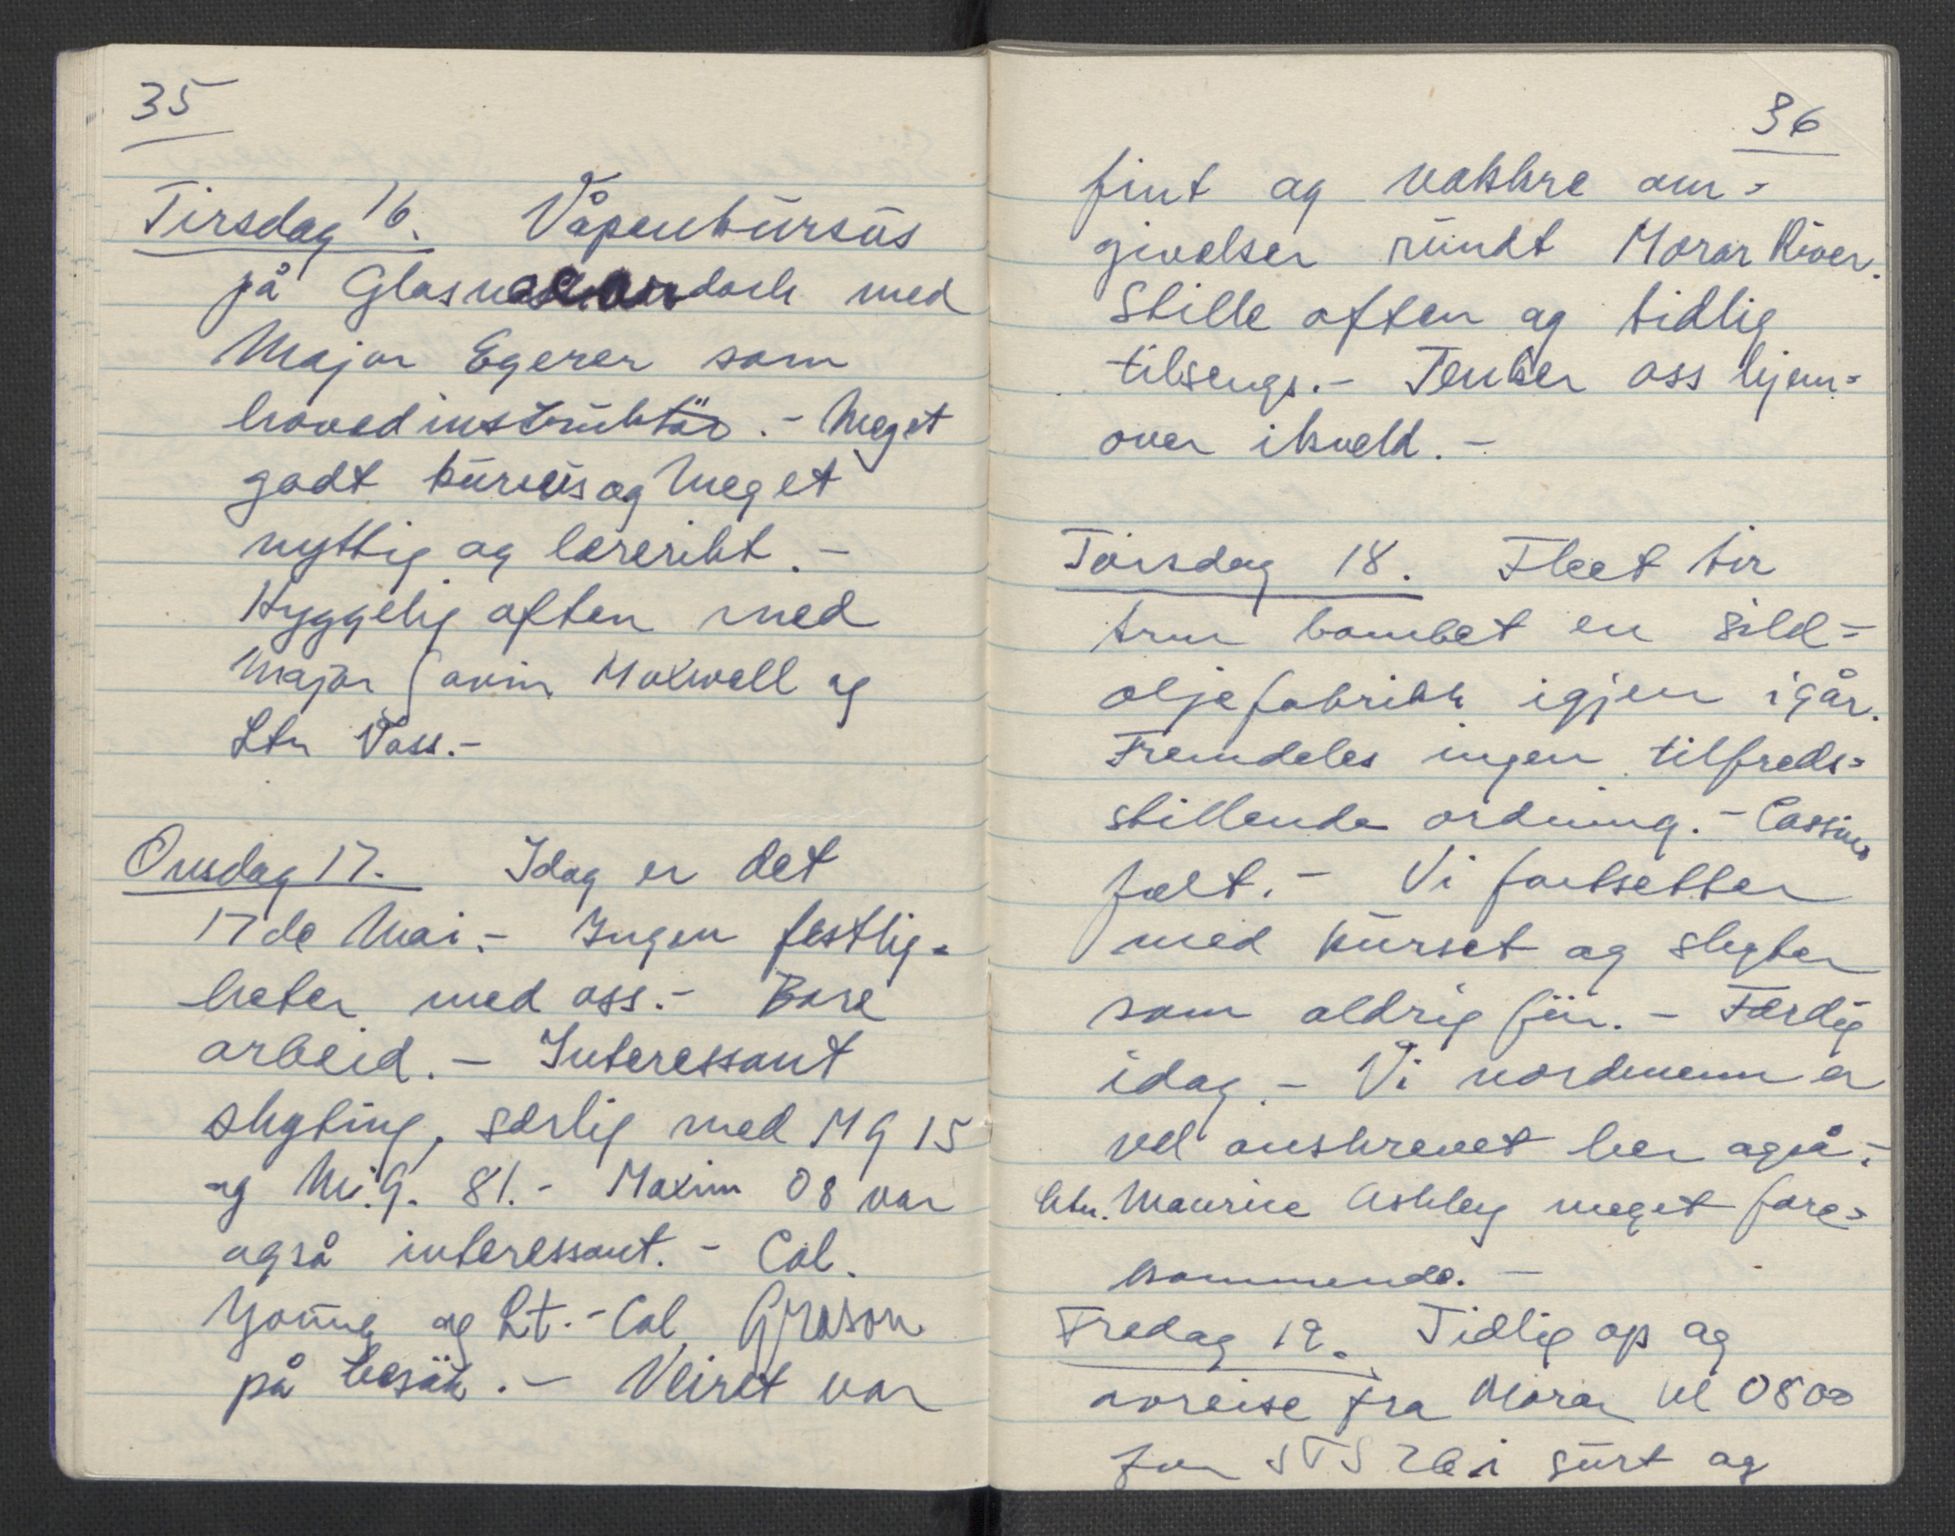 35
Tirsdag 16. Våpenkursus
på Glasnacardoch med
Major Egerer som
hovedinstruktør. - Meget
godt kursus og meget
nyttig og lærerikt. -
Hyggelig aften med
Major Gavin Maxwell og
Ltn Voss. -
Onsdag 17. Idag er det
17de Mai. - Ingen festlig=
heter med oss. - Bare
arbeid. - Interessant
skyting, særlig med MG 15
og M.G. 81. - Maxim 08 var
også interessant. - Col.
Young og Lt.-Col
på besøk. - Veiret var
36
fint og vakkre om=
givelser rundt Morar River.
Stille aften og tidlig
tilsengs. - Tenker oss hjem=
over ikveld. -
Torsdag 18. Fleet Air
Arm bombet en sild=
oljefabrikk igjen igår.
Fremdeles ingen tilfreds=
stillende ordning. - Cassino
falt. - Vi fortsetter
med kurset og skyter
som aldrig før. - Færdig
idag. - Vi nordmenn er
vel anskrevet her også. -
Ltn. Maurice Ashley meget fore=
kommende. -
Fredag 19. Tidlig op og
avreise fra Morar kl 0800
for STS 26 i surt og